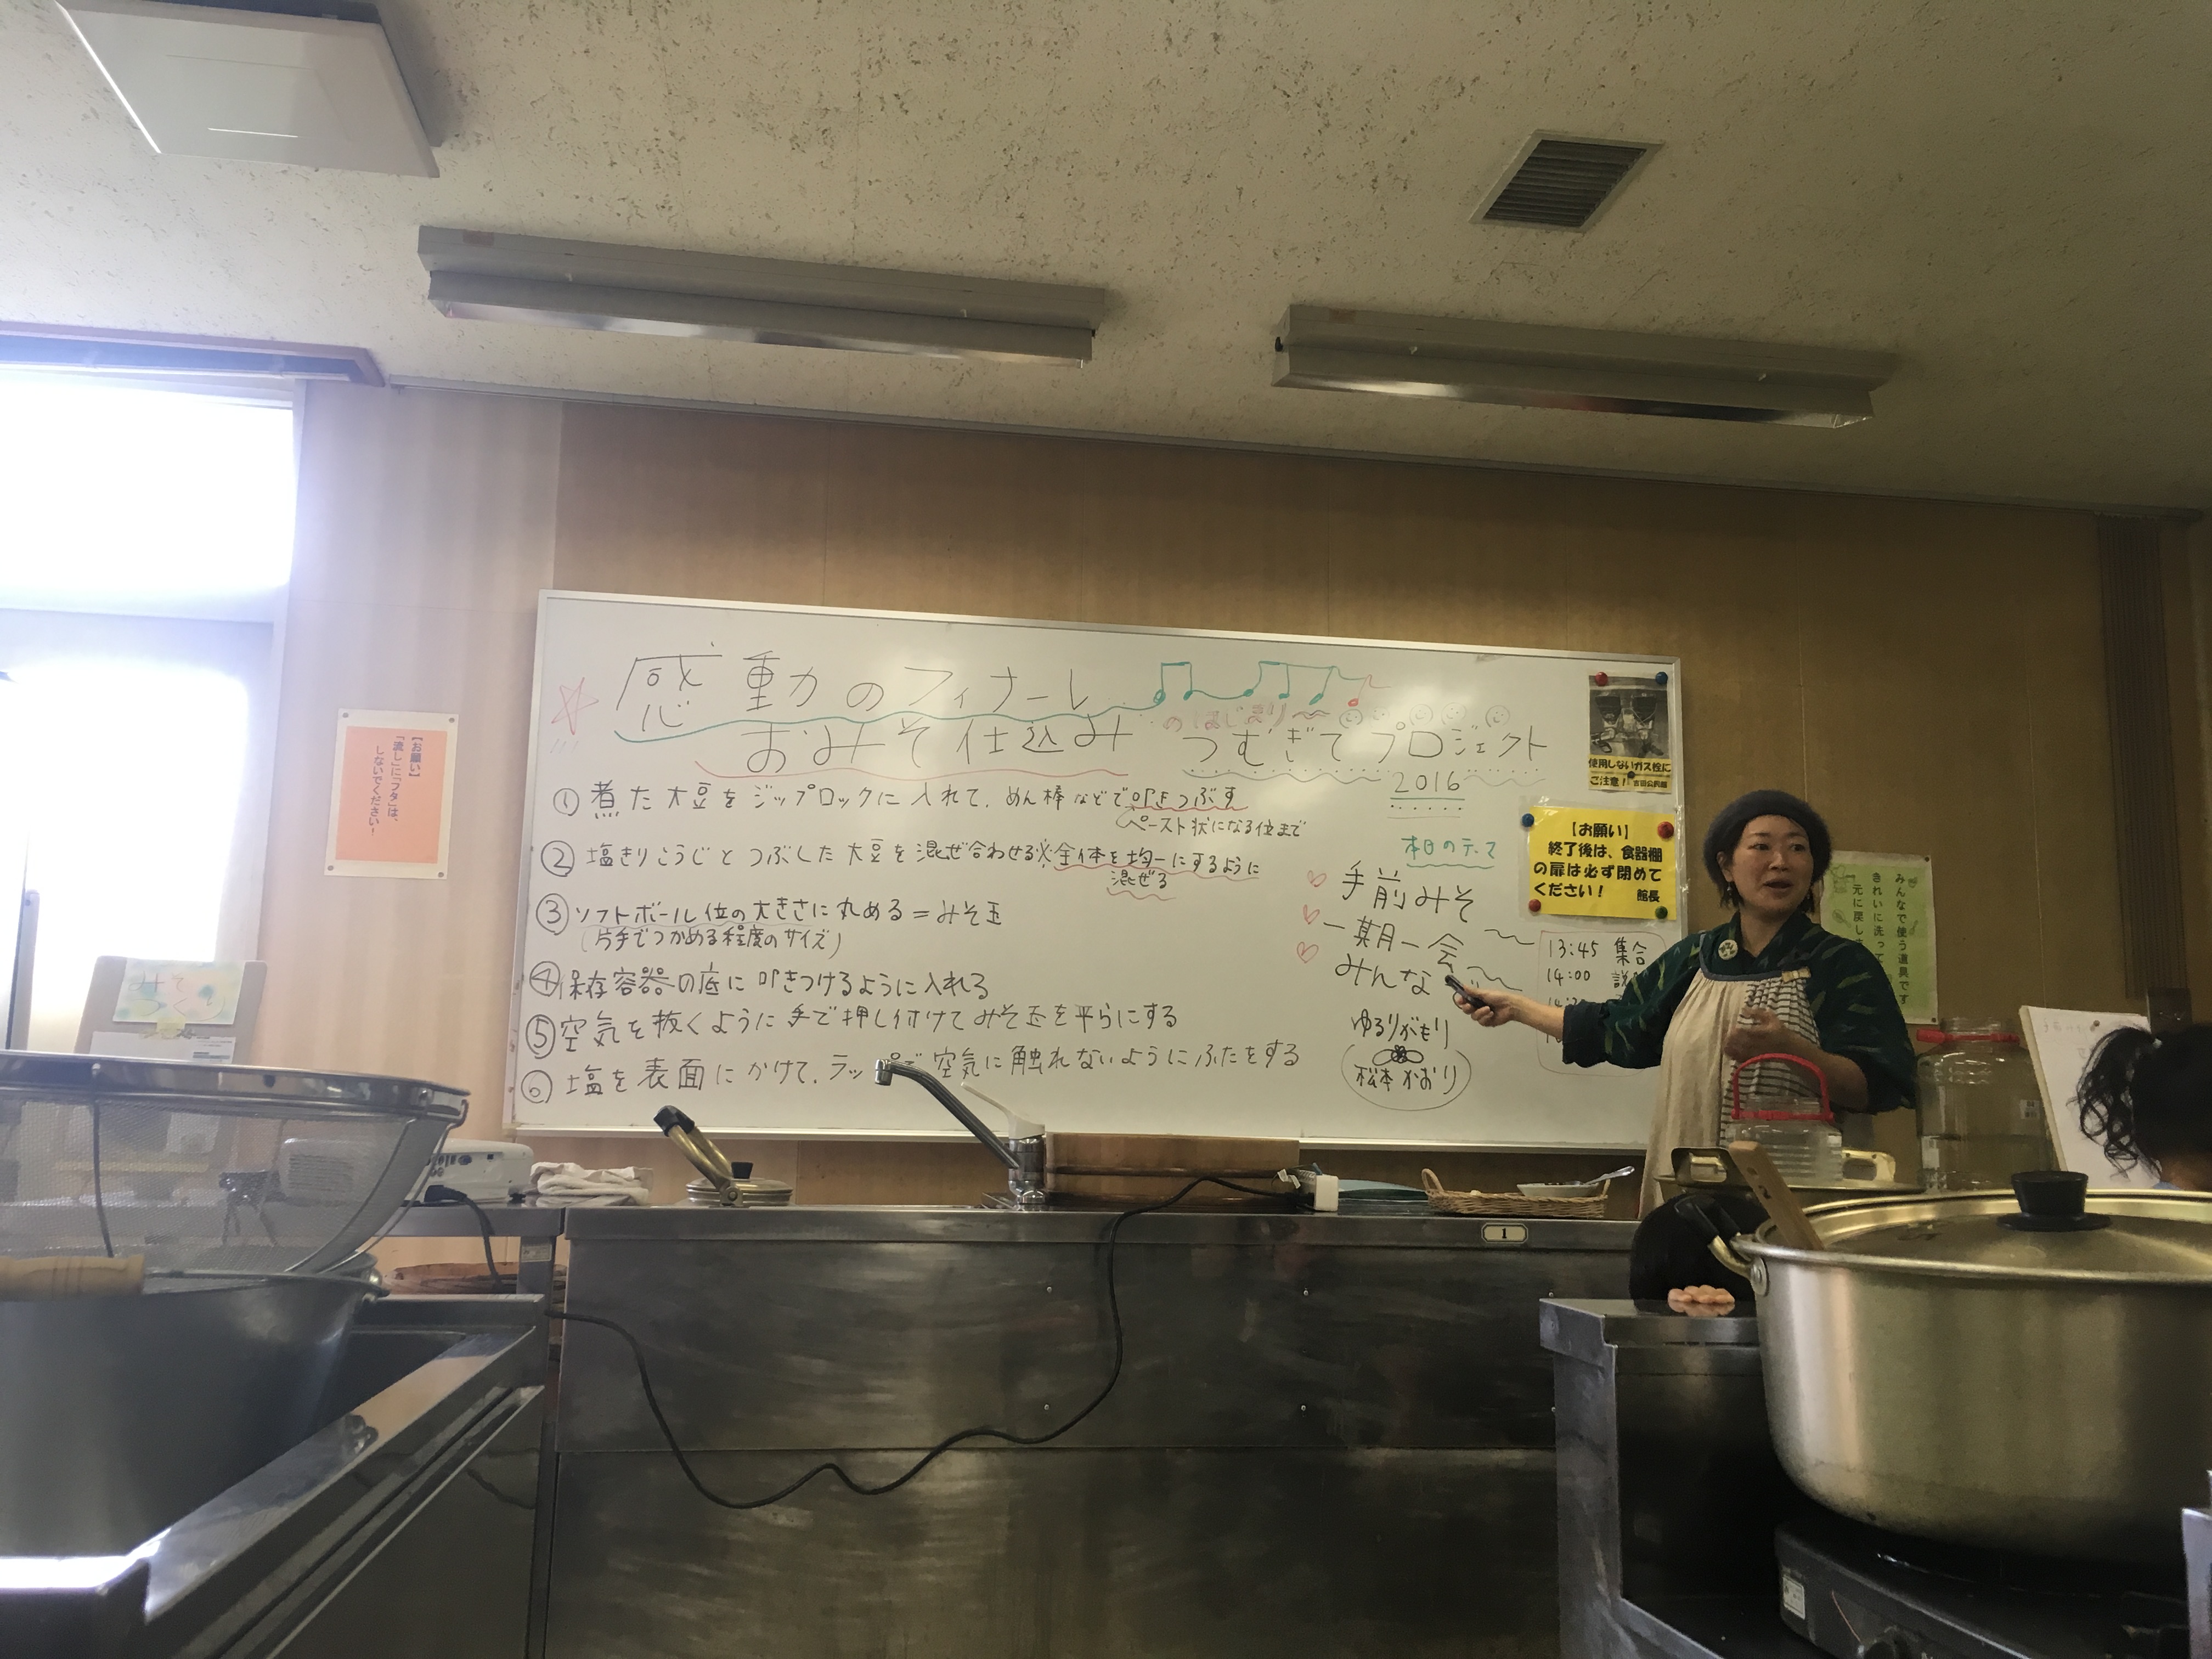 感動のフィナーレ
のはじまり〜
おみそ仕込み つむぎてプロジェクト
2016
① 煮た大豆をジップロックに入れて、めん棒などで叩きつぶす
ペースト状になる位まで
② 塩きりこうじとつぶした大豆を混ぜ合わせる※全体を均一にするように
混ぜる
③ ソフトボール位の大きさに丸める=みそ玉
(片手でつかめる程度のサイズ)
④ 保存容器の底に叩きつけるように入れる
⑤ 空気を抜くように手で押し付けてみそ玉を平らにする
⑥ 塩を表面にかけて、ラップで空気に触れないようにふたをする
本日のテーマ
手前みそ
一期一会
みんな
ゆるりがもり
松本かおり
13:45 集合
14:00 説
使用しないガス栓に
ご注意! 吉田公民館
【お願い】
終了後は、食器棚
の扉は必ず閉めて
ください! 館長
みんなで使う道具です
きれいに洗って
元に戻しま
【お願い】
「流し」に「フタ」は、
しないでください!
みそ
つくり
1